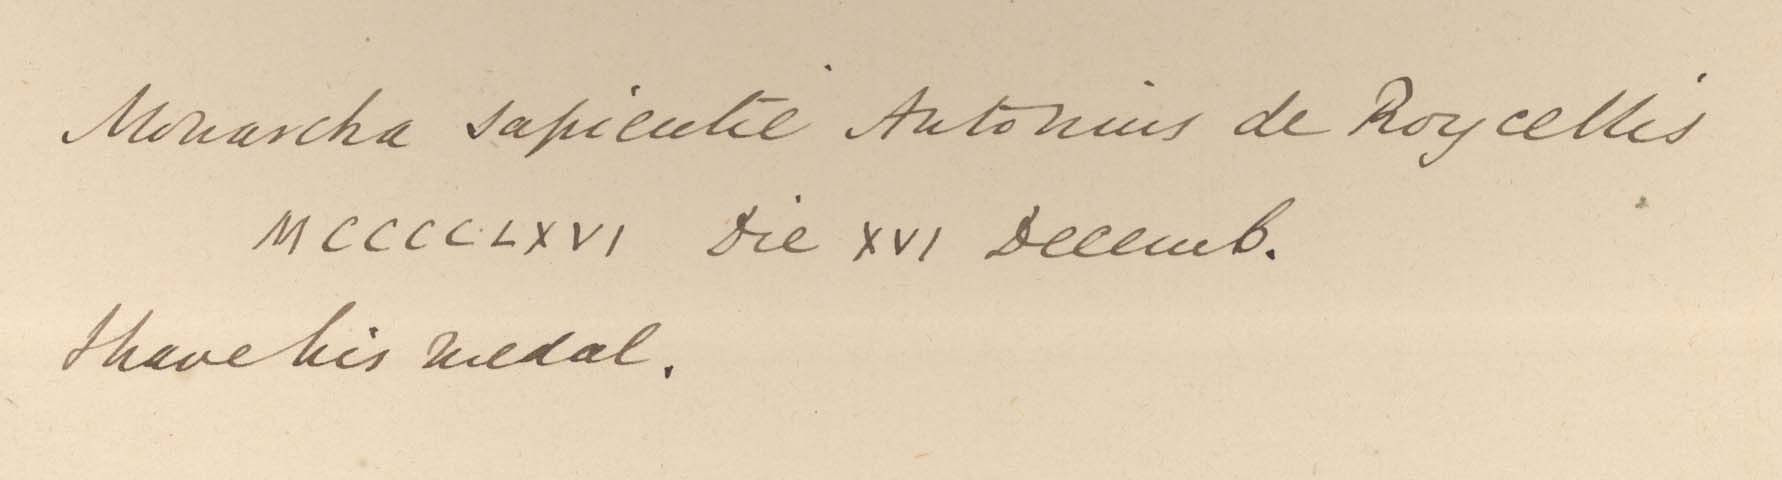 Monarcha sapientie Antonius de Roycellis
MCCCCLXVI Die XVI Decemb.
I have his medal.